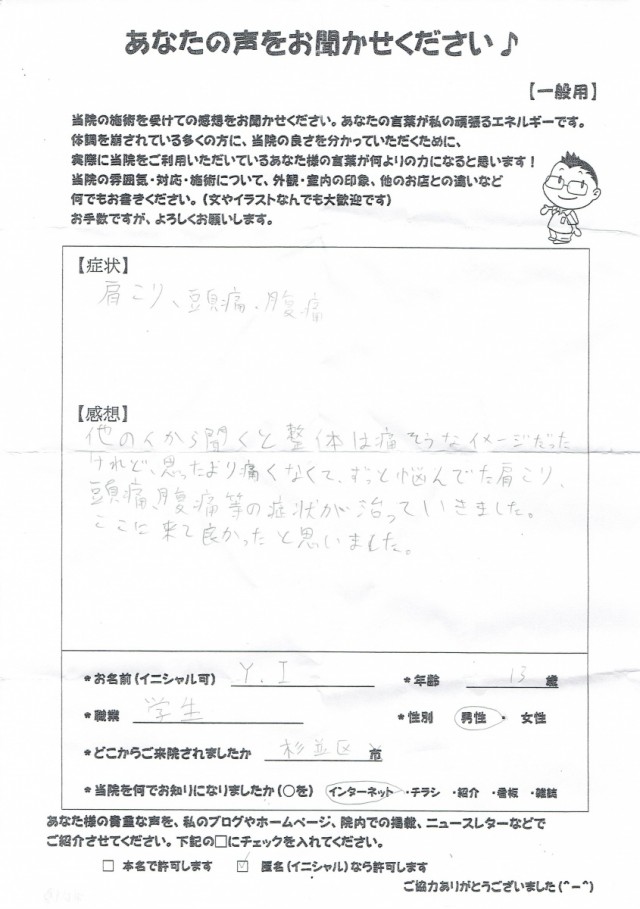 あなたの声をお聞かせください♪
【一般用】
当院の施術を受けての感想をお聞かせください。あなたの言葉が私の頑張るエネルギーです。
体調を崩されている多くの方に、当院の良さを分かっていただくために、
実際に当院をご利用いただいているあなた様の言葉が何よりの力になると思います！
当院の雰囲気・対応・施術について、外観・室内の印象、他のお店との違いなど
何でもお書きください。（文やイラストなんでも大歓迎です）
お手数ですが、よろしくお願いします。
【症状】
肩こり、頭痛、腹痛
【感想】
他の人から聞くと整体は痛そうなイメージだった
けれど、思ったより痛くなくて、ずっと悩んでた肩こり、
頭痛、腹痛等の症状が治っていきました。
ここに来て良かったと思いました。
*お名前（イニシャル可） Y.I *年齢 13 歳
*職業 学生 *性別 男性 ・ 女性
*どこからご来院されましたか 杉並区 市
*当院を何でお知りになりましたか（〇を） インターネット ・チラシ ・紹介 ・看板 ・雑誌
あなた様の貴重な声を、私のブログやホームページ、院内での掲載、ニュースレターなどで
ご紹介させてください。下記の□にチェックを入れてください。
□ 本名で許可します ☑ 匿名（イニシャル）なら許可します
ご協力ありがとうございました（＾－＾）